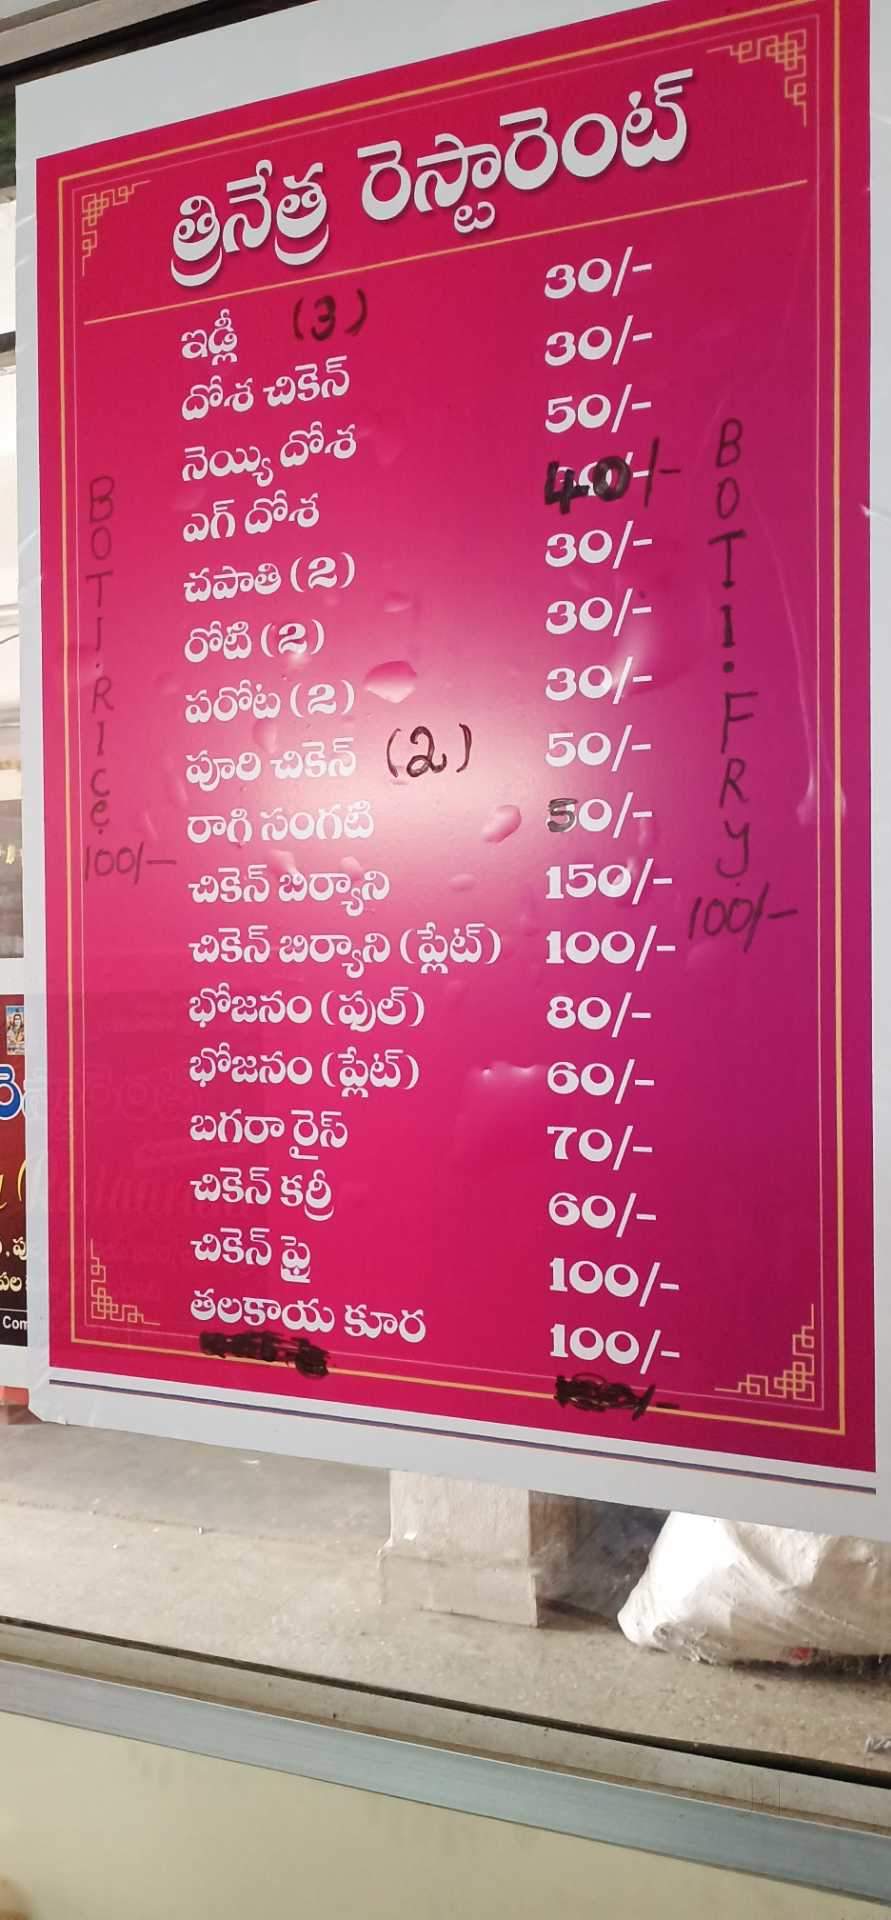 త్రినేత్ర రెస్టారెంట్
ఇడ్లీ (3) 30/-
దోశ చికెన్ 30/-
నెయ్యి దోశ 50/-
ఎగ్ దోశ 40/-
చపాతి (2) 30/-
రోటి (2) 30/-
పరోట (2) 30/-
పూరి చికెన్ (2) 50/-
రాగి సంగటి 50/-
చికెన్ బిర్యాని 150/-
చికెన్ బిర్యాని (ప్లేట్) 100/-
భోజనం (ఫుల్) 80/-
భోజనం (ప్లేట్) 60/-
బగరా రైస్ 70/-
చికెన్ కర్రీ 60/-
చికెన్ ఫ్రై 100/-
తలకాయ కూర 100/-
BOTI.RICe.
100/-
BOTI.FRY.
100/-
Com